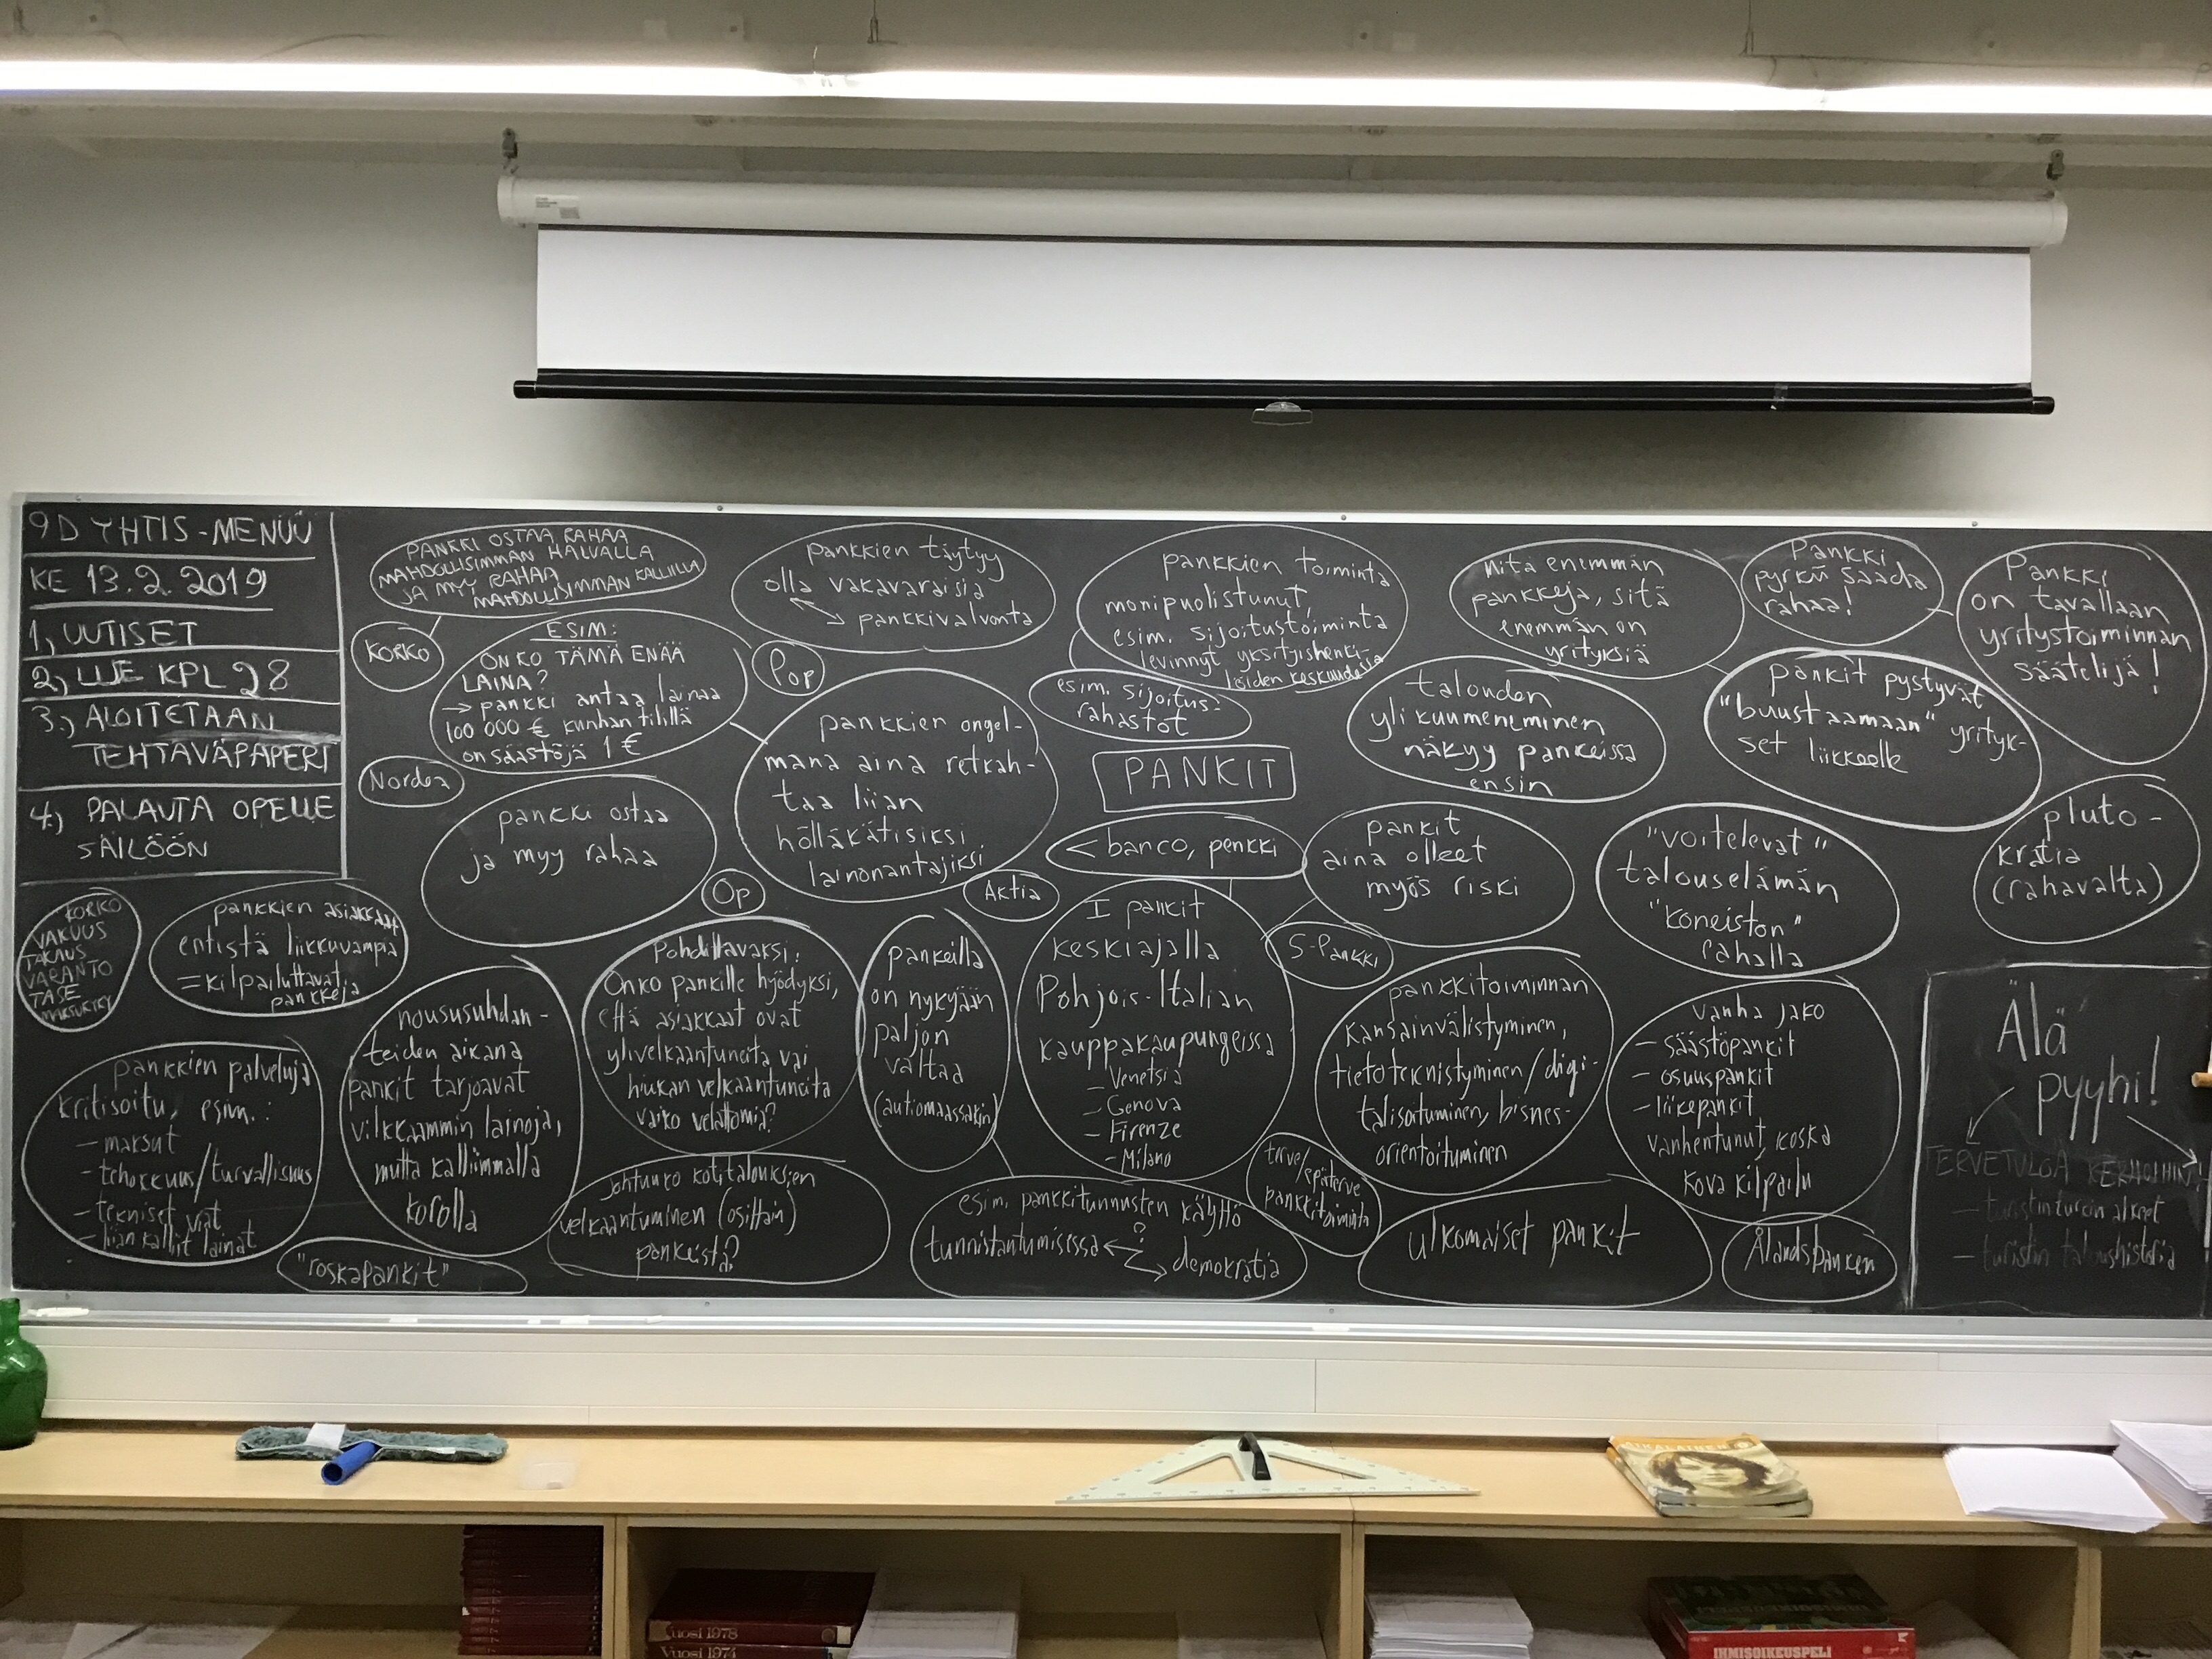 9D YHTIS-MENUU
KE 13.2.2019
1, UUTISET
2, LUE KPL 28
3.) ALOITETAAN
TEHTÄVÄPAPERI
4.) PALAUTA OPELLE
SÄILÖÖN
KORKO
VAKUUS
TAKAUS
VARANTO
TASE
pankkien asiakkaat
entistä liikkuvampia
=kilpailuttavat
pankkeja
pankkien palveluja
kritisoitu, esim.:
- maksut
- tehokkuus/turvallisuus
- tekniset viat
- liian kalliit lainat
"roskapankit"
PANKKI OSTAA RAHAA
MAHDOLLISIMMAN HALVALLA
JA MYY RAHAA
MAHDOLLISIMMAN KALLIILLA
KORKO
ESIM:
ONKO TÄMÄ ENÄÄ
LAINA?
→ pankki antaa lainaa
100 000 € kunhan tilillä
on säästöjä 1 €
Nordea
pankki ostaa
ja myy rahaa
Op
noususuhdan-
teiden aikana
pankit tarjoavat
vilkkaammin lainoja,
mutta kalliimmalla
korolla
Pohdittavaksi:
Onko pankille hyödyksi,
että asiakkaat ovat
ylivelkaantuneita vai
hiukan velkaantuneita
vaiko velattomia?
Johtuuko kotitalouksien
velkaantuminen (osittain)
pankeista?
pankkien täytyy
olla vakavaraisia
pankkivalvonta
Pop
pankkien ongel-
mana aina retkah-
taa liian
hölläkätisiksi
lainonantajiksi
Aktia
pankeilla
on nykyään
paljon
valtaa
(autiomaassakin)
esim. pankkitunnusten käyttö
tunnistautumisessa ← ?
→ demokratia
pankkien toiminta
monipuolistunut,
esim. sijoitustoiminta
levinnyt yksityishenki-
löiden keskuudessa
esim. sijoitus-
rahastot
PANKIT
< banco, penkki
I pankit
keskiajalla
Pohjois-Italian
kauppakaupungeissa
- Venetsia
- Genova
- Firenze
- Milano
S-Pankki
pankit
aina olleet
myös riski
terve/epäterve
pankkitoiminta
pankkitoiminnan
kansainvälistyminen,
tietoteknistyminen/digi-
talisoituminen, bisnes-
orientoituminen
ulkomaiset pankit
Mitä enemmän
pankkeja, sitä
enemmän on
yrityksiä
talouden
ylikuumeneminen
näkyy pankeissa
ensin
Pankki
pyrkii saada
rahaa!
Pankki
on tavallaan
yritystoiminnan
säätelijä!
pankit pystyvät
"buustaamaan" yrityk-
set liikkeelle
"voitelevat"
talouselämän
"koneiston"
rahalla
pluto-
kratia
(rahavalta)
vanha jako
- säästöpankit
- osuuspankit
- liikepankit
vanhentunut, koska
kova kilpailu
Ålandsbanken
Älä
pyyhi!
TERVETULOA KERHOIHIN!
- turistin
- turistin taloushistoria
VUOSI 1978
VUOSI 1974
IHMISOIKEUSPELI